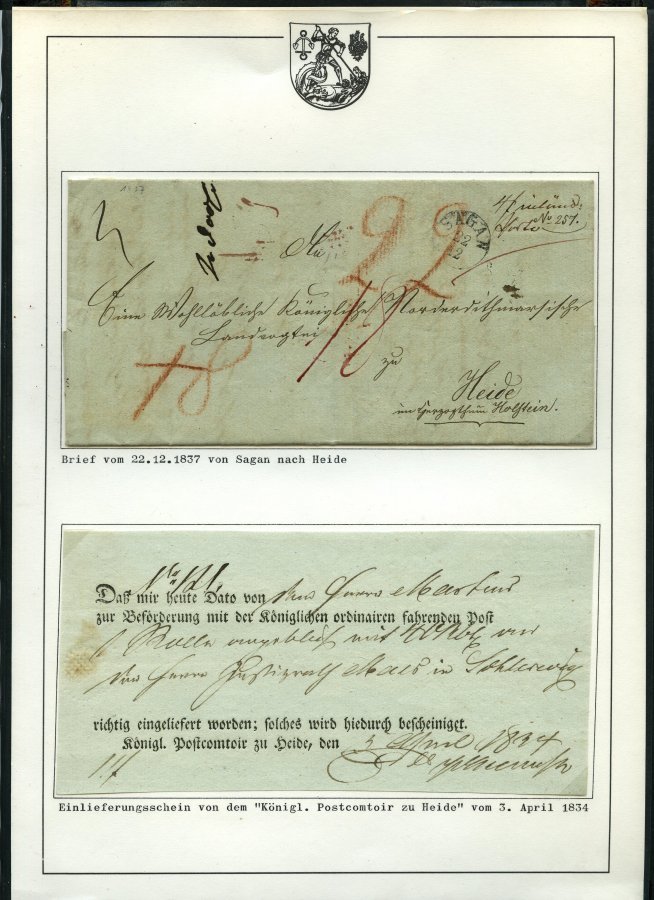 1837
SAGAN
22
12
No 257.
An
Eine Wohllöbliche Königliche Norderdithmarsische
Landvogtei
zu
Heide
im Herzogthum Holstein.
Brief vom 22.12.1837 von Sagan nach Heide
Daß mir heute Dato von Herrn Martens
zur Beförderung mit der Königlichen ordinairen fahrenden Post
1 Rolle angeblich mit
Herrn Justizrath in Schleswig
richtig eingeliefert worden; solches wird hiedurch bescheiniget.
Königl. Postcomtoir zu Heide, den 3 April 1834
Einlieferungsschein von dem "Königl. Postcomtoir zu Heide" vom 3. April 1834